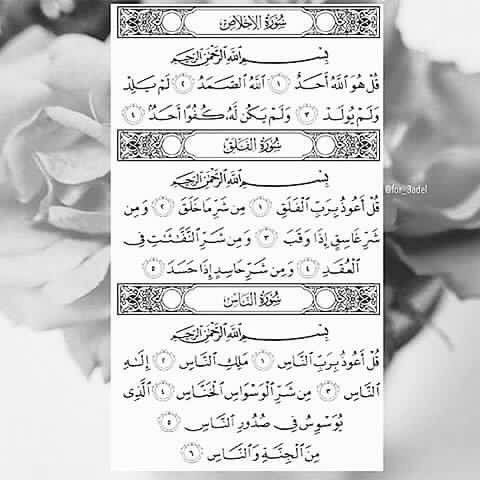 سُورَةُ الإِخْلَاصِ
بِسْمِ ٱللَّهِ ٱلرَّحْمَٰنِ ٱلرَّحِيمِ
قُلْ هُوَ ٱللَّهُ أَحَدٌ ١ ٱللَّهُ ٱلصَّمَدُ ٢ لَمْ يَلِدْ
وَلَمْ يُولَدْ ٣ وَلَمْ يَكُن لَّهُ كُفُوًا أَحَدٌ ٤
سُورَةُ الفَلَقِ
بِسْمِ ٱللَّهِ ٱلرَّحْمَٰنِ ٱلرَّحِيمِ
قُلْ أَعُوذُ بِرَبِّ ٱلْفَلَقِ ١ مِن شَرِّ مَا خَلَقَ ٢ وَمِن
شَرِّ غَاسِقٍ إِذَا وَقَبَ ٣ وَمِن شَرِّ ٱلنَّفَّٰثَٰتِ فِى
ٱلْعُقَدِ ٤ وَمِن شَرِّ حَاسِدٍ إِذَا حَسَدَ ٥
سُورَةُ النَّاسِ
بِسْمِ ٱللَّهِ ٱلرَّحْمَٰنِ ٱلرَّحِيمِ
قُلْ أَعُوذُ بِرَبِّ ٱلنَّاسِ ١ مَلِكِ ٱلنَّاسِ ٢ إِلَٰهِ
ٱلنَّاسِ ٣ مِن شَرِّ ٱلْوَسْوَاسِ ٱلْخَنَّاسِ ٤ ٱلَّذِى
يُوَسْوِسُ فِى صُدُورِ ٱلنَّاسِ ٥
مِنَ ٱلْجِنَّةِ وَٱلنَّاسِ ٦
@for_3adel